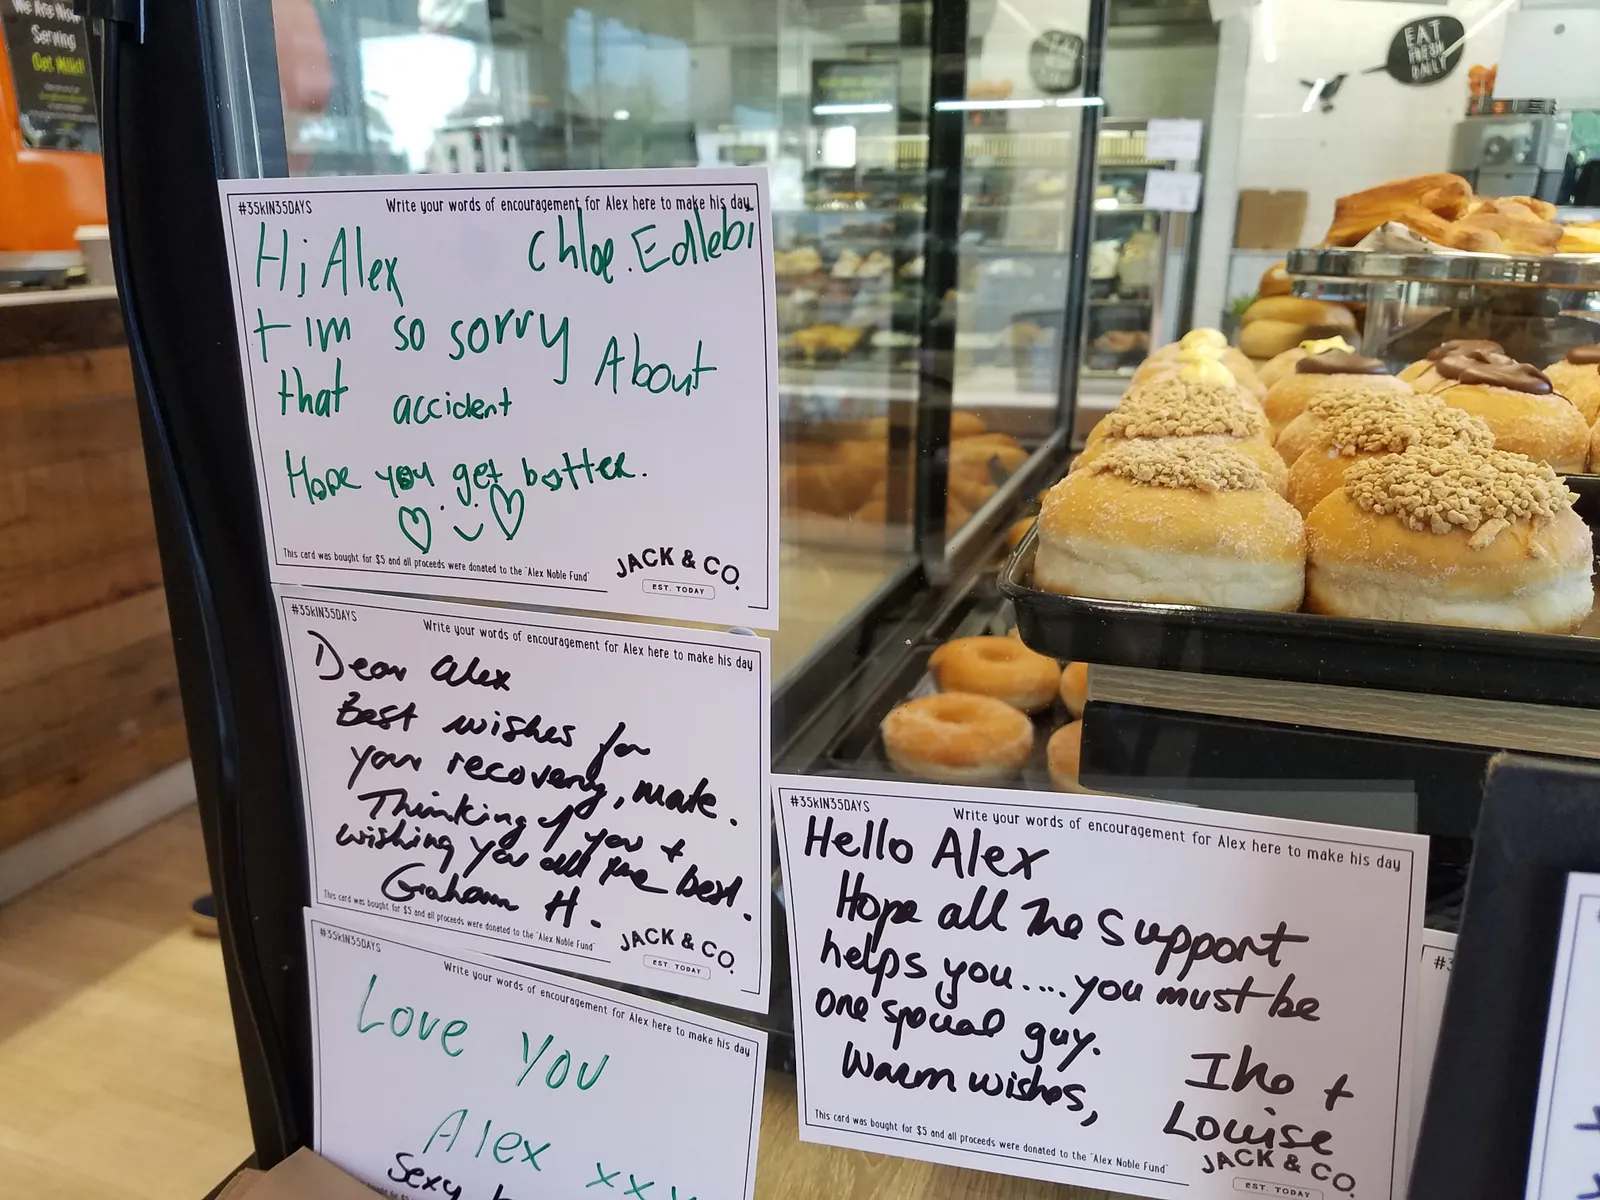 We Are Now
Serving
Oat Milk!
EAT
FRESH
DAILY
#35kIN35DAYS
Write your words of encouragement for Alex here to make his day
Hi Alex
Chloe.Edlebi
I im so sorry About
that accident
Hope you get better.
This card was bought for $5 and all proceeds were donated to the "Alex Noble Fund"
JACK & CO.
EST. TODAY
#35kIN35DAYS
Write your words of encouragement for Alex here to make his day
Dear Alex
Best wishes for
your recovery, mate.
Thinking of you +
wishing you all the best.
Graham H.
This card was bought for $5 and all proceeds were donated to the "Alex Noble Fund"
JACK & CO.
EST. TODAY
#35kIN35DAYS
Write your words of encouragement for Alex here to make his day
Love You
Alex xxx
Sexy
#35kIN35DAYS
Write your words of encouragement for Alex here to make his day
Hello Alex
Hope all the support
helps you....you must be
one special guy.
Warm wishes,
Iko +
Louise
This card was bought for $5 and all proceeds were donated to the "Alex Noble Fund"
JACK & CO.
EST. TODAY